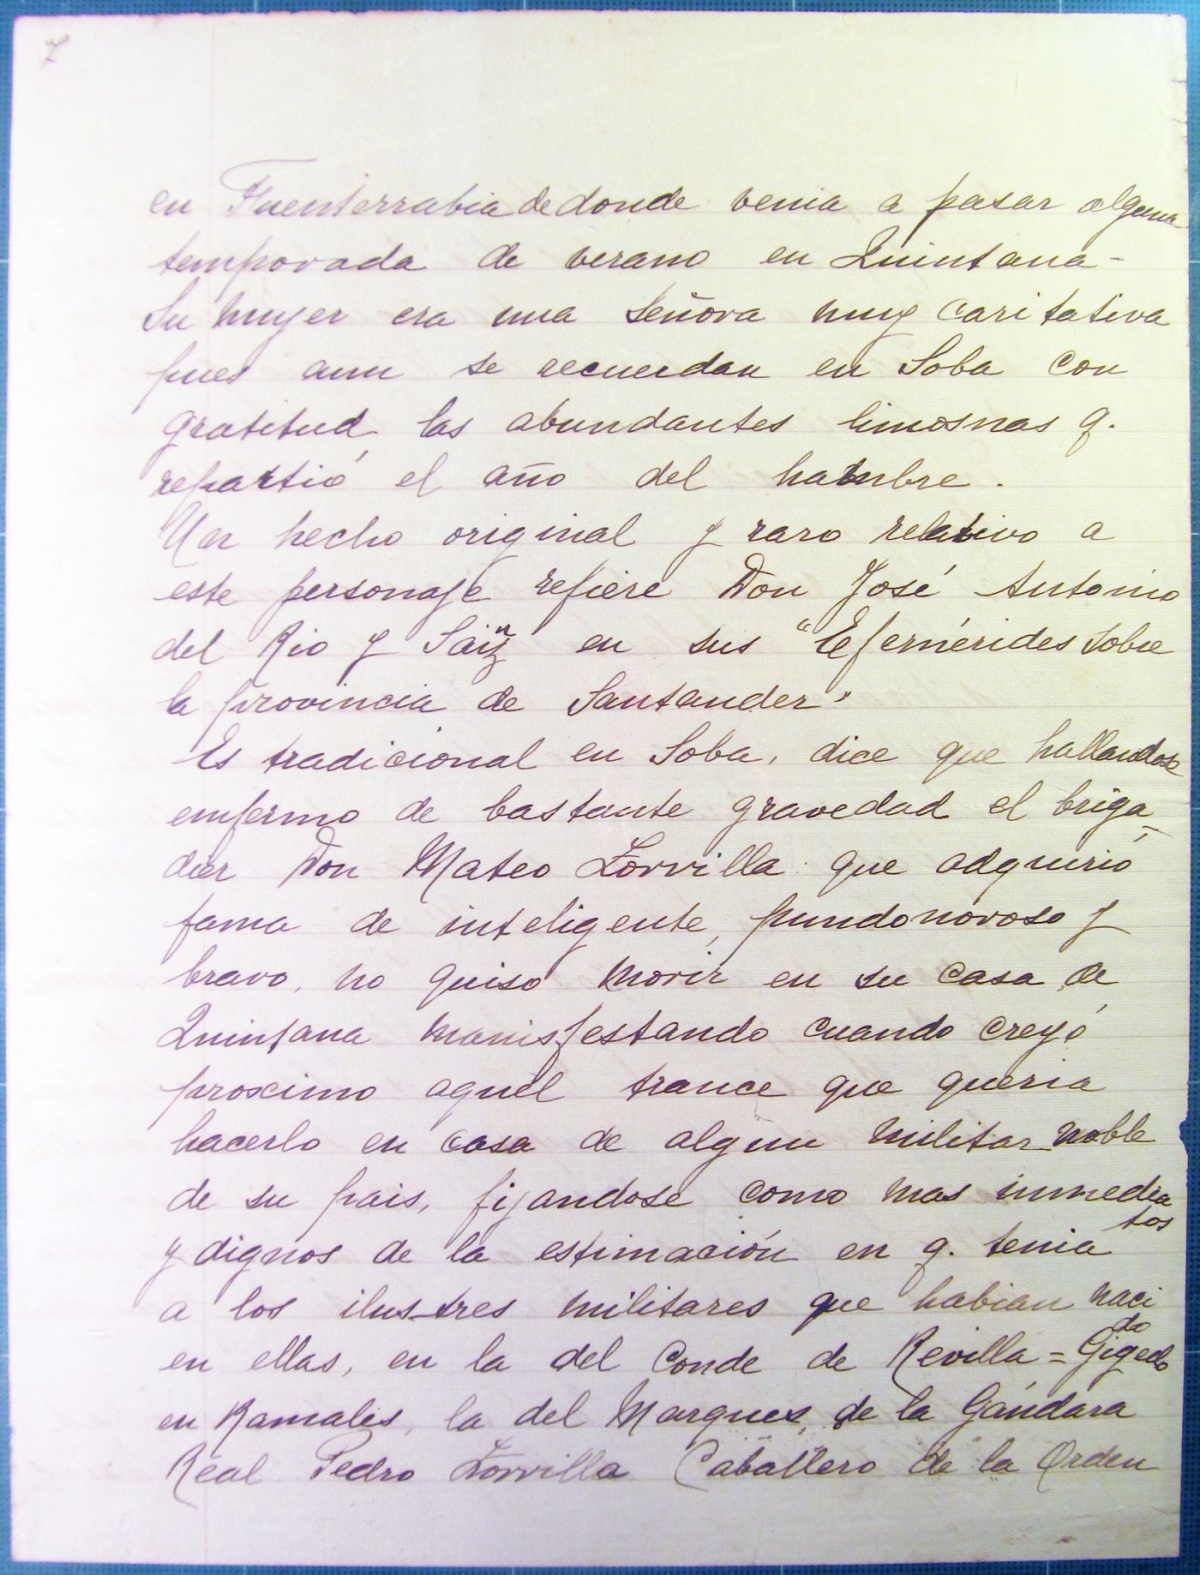 7
en Fuenterrabia de donde venia a pasar alguna
temporada de verano en Quintana-
Su muger era una señora muy caritativa
pues aun se recuerdan en Soba con
gratitud las abundantes limosnas q.
repartió el año del hambre.
Un hecho original y raro relativo a
este personaje refiere Don José Antonio
del Rio y Sainz en sus "Efemérides sobre
la provincia de Santander"
Es tradicional en Soba, dice que hallandose
enfermo de bastante gravedad el briga-
dier Don Mateo Zorrilla que adquirió
fama de inteligente, pundonoroso y
bravo, no quiso morir en su casa de
Quintana manisfestando cuando creyó
proximo aquel trance que queria
hacerlo en casa de algun militar noble
de su pais, fijandose como mas inmedia
tos
y dignos de la estimación en q. tenia
a los ilustres militares que habian naci
do
en ellas, en la del Conde de Revilla=Gigedo
en Ramales, la del Marques, de la Gándara
Real Pedro Zorrilla Caballero de la Orden